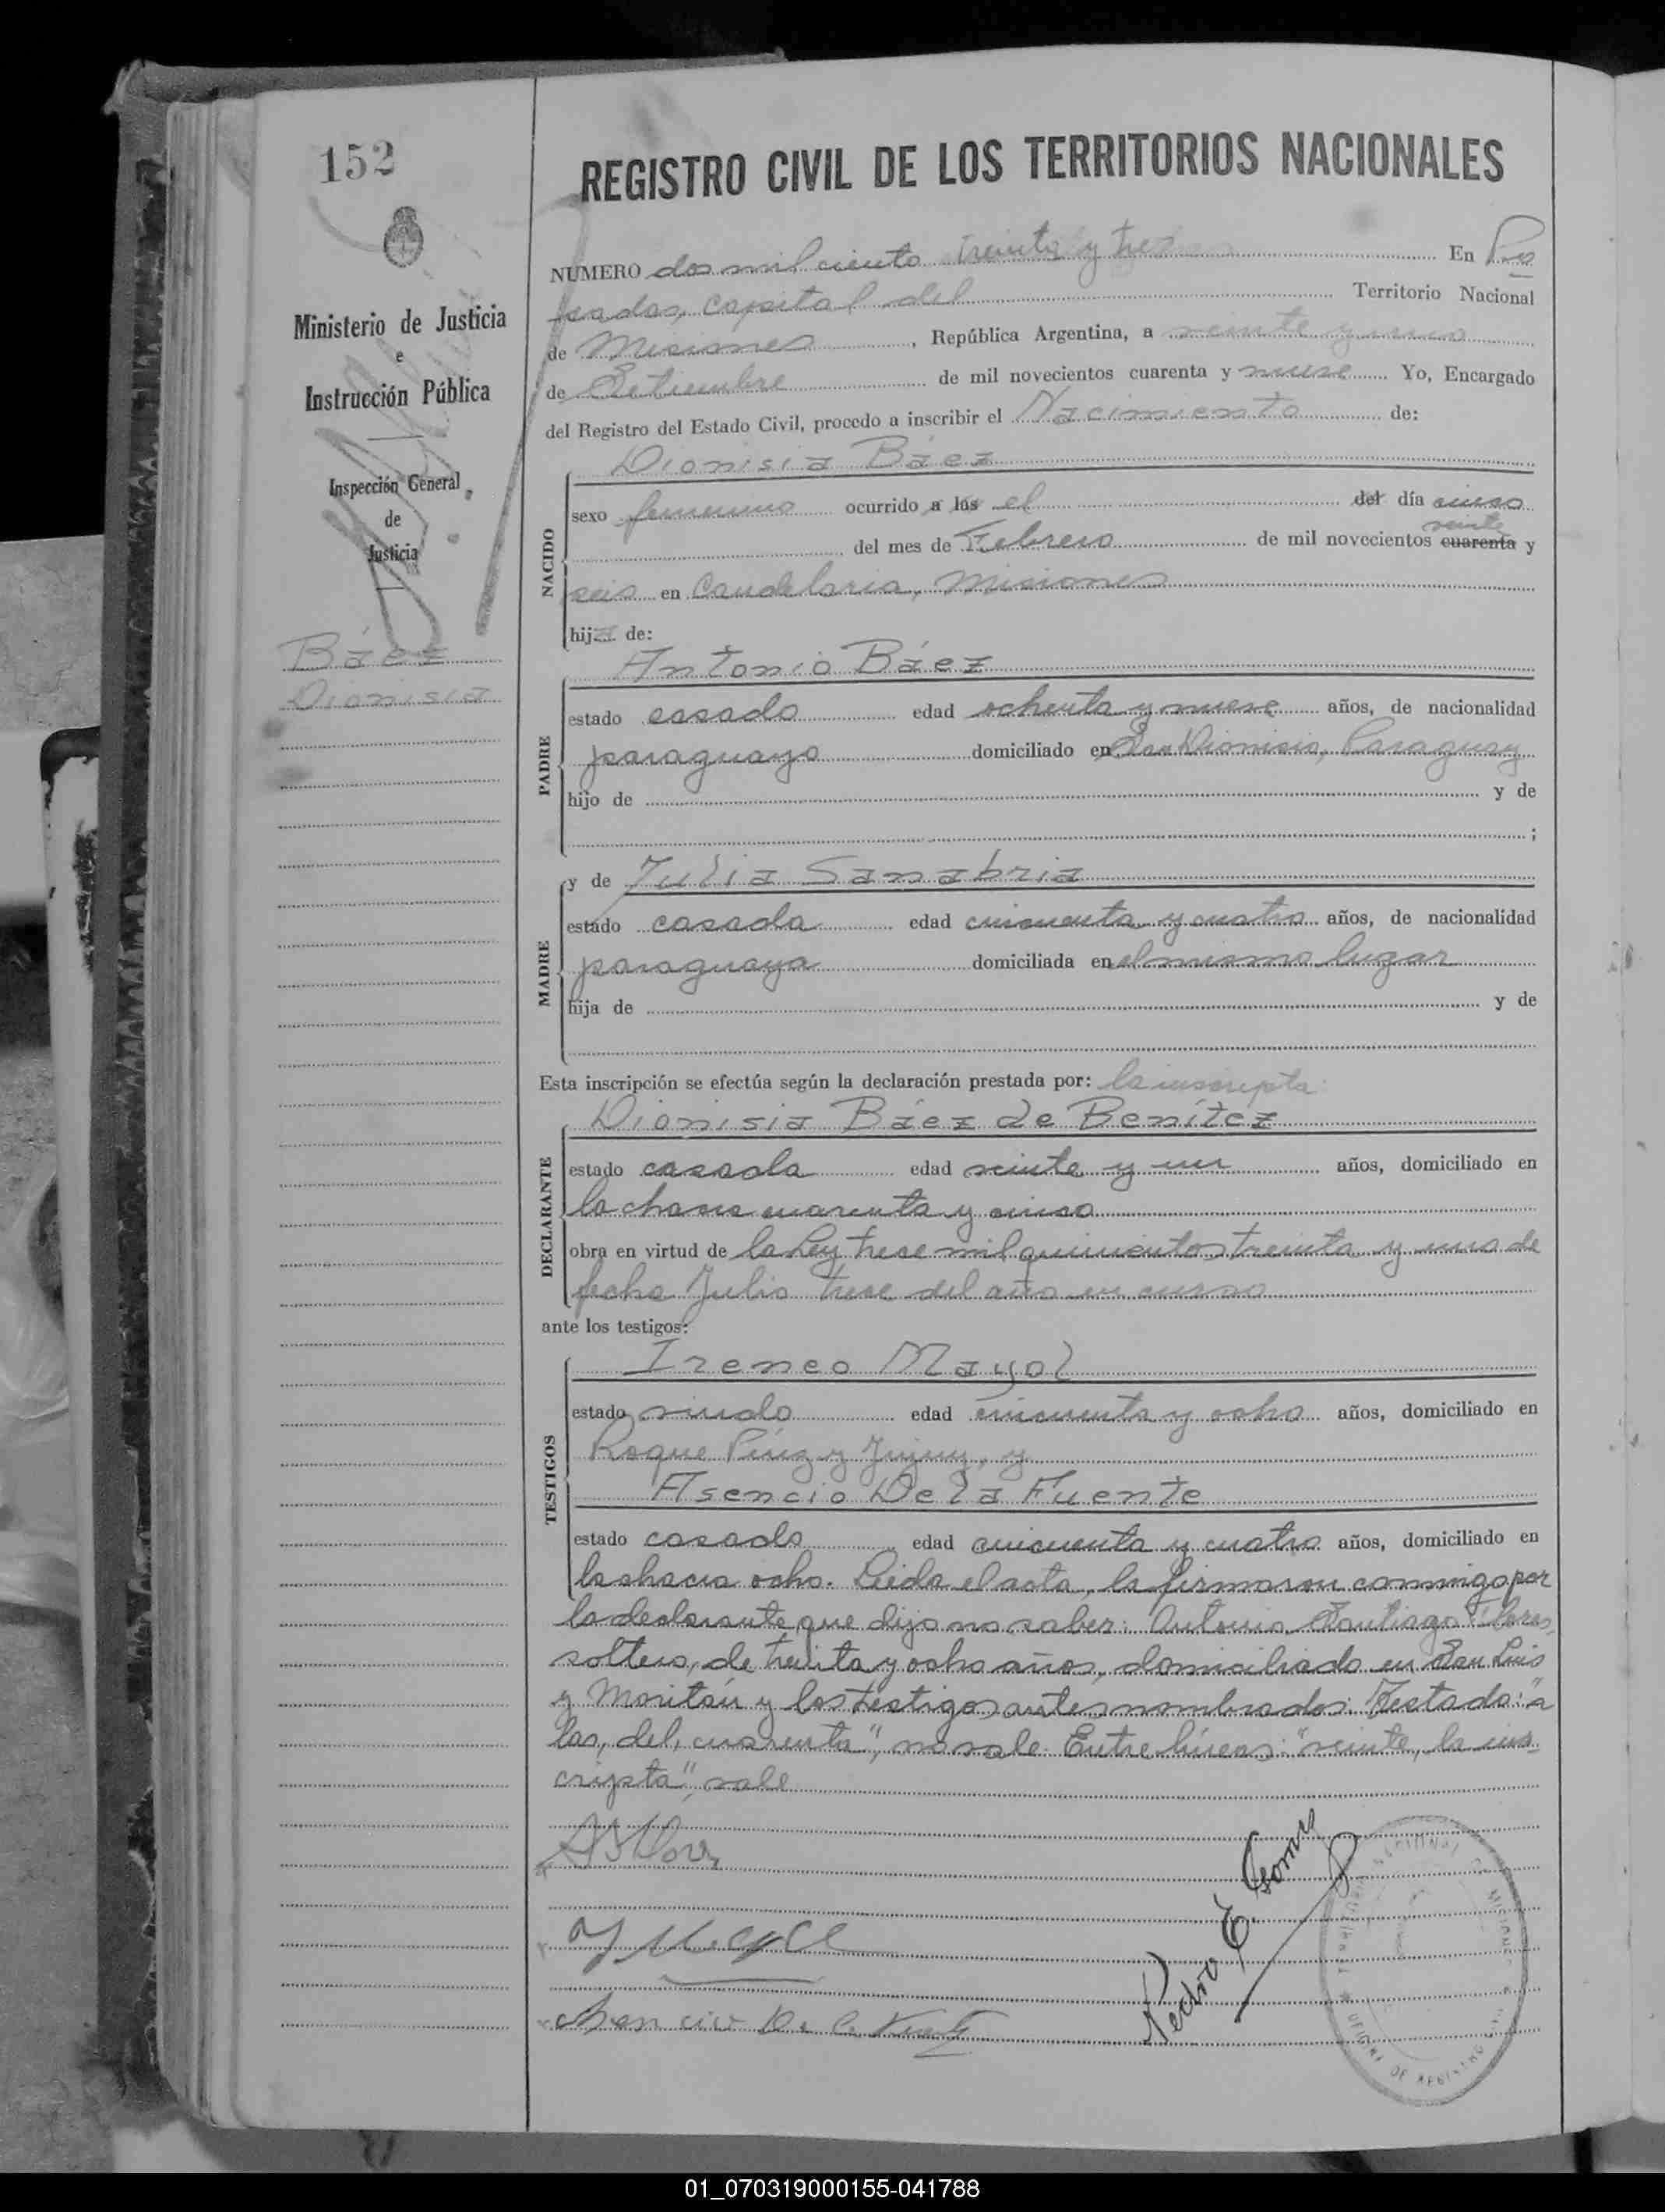 152
REGISTRO CIVIL DE LOS TERRITORIOS NACIONALES
Ministerio de Justicia
e
Instrucción Pública
Inspección General
de
Justicia
Báez
Dionisia
NUMERO dos mil ciento treinta y tres En Po=
sadas, capital del Territorio Nacional
de Misiones, República Argentina, a veinte y uno
de Setiembre de mil novecientos cuarenta y nueve Yo, Encargado
del Registro del Estado Civil, procedo a inscribir el Nacimiento de:
NACIDO
Dionisia Báez
sexo femenino ocurrido a las el del día cinco
veinte
del mes de Febrero de mil novecientos cuarenta y
seis en Candelaria, Misiones
hija de:
PADRE
Antonio Báez
estado casado edad ochenta y nueve años, de nacionalidad
paraguayo domiciliado en San Dionisio, Paraguay
hijo de y de
;
MADRE
y de Julia Sanabria
estado casada edad cincuenta y cuatro años, de nacionalidad
paraguaya domiciliada en el mismo lugar
hija de y de
Esta inscripción se efectúa según la declaración prestada por: la inscripta
DECLARANTE
Dionisia Báez de Benítez
estado casada edad veinte y un años, domiciliado en
la chacra cuarenta y cinco
obra en virtud de la Ley trece mil quinientos treinta y uno de
fecha Julio trece del año en curso
ante los testigos:
TESTIGOS
Ireneo Mayol
estado viudo edad cincuenta y ocho años, domiciliado en
Roque Pérez y Jujuy, y
Asencio De la Fuente
estado casado edad cincuenta y cuatro años, domiciliado en
la chacra ocho. Leida el acta, la firmaron conmigo por
la declarante que dijo no saber: Antonio Santiago Flores,
soltero, de treinta y ocho años, domiciliado en San Luis
y Moritán y los testigos antes nombrados. Testado: "a
las, del, cuarenta", no vale. Entre líneas: "veinte, la ins=
cripta", vale
Pedro E. Gomez
01_070319000155-041788